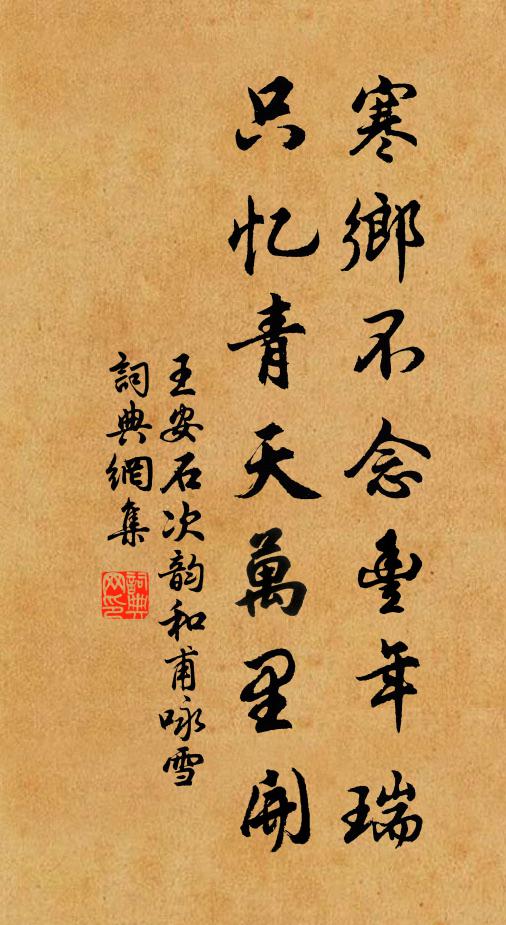 寒鄉不念豊年瑞
只忆青天萬里開
王安石次韵和甫咏雪
詞典網集
詞典网印